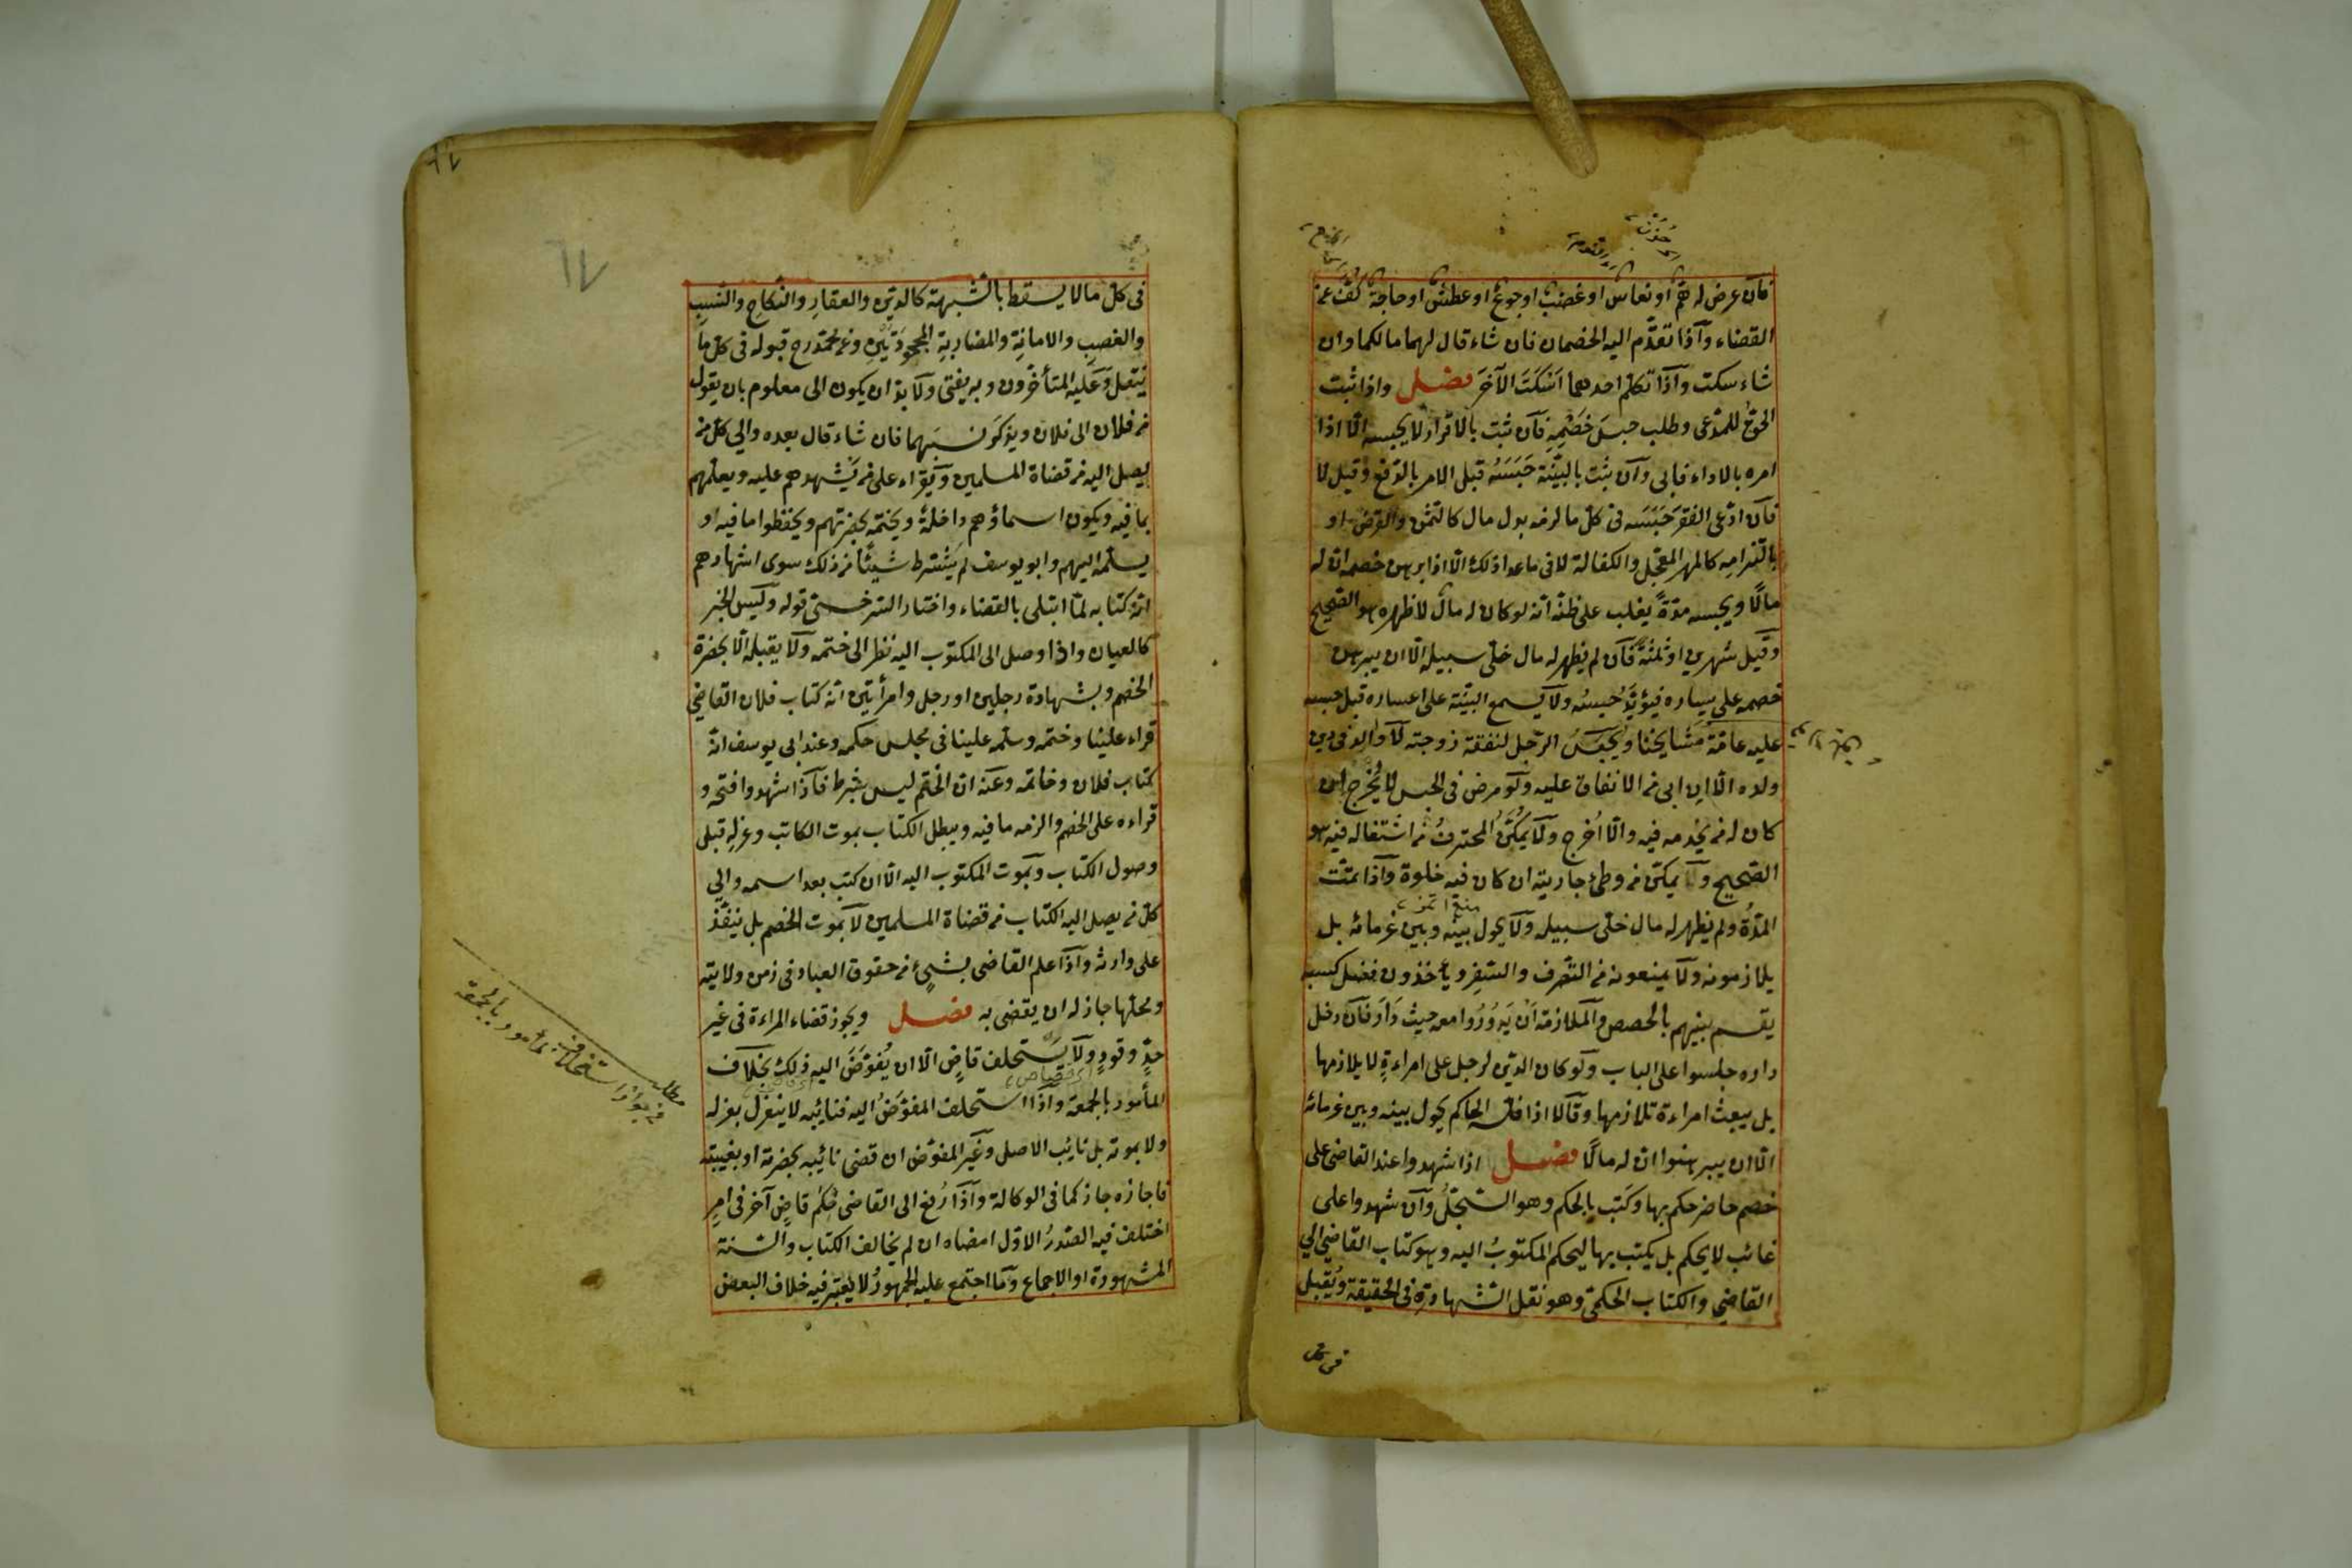 فان عرض له همّ او نعاس او غضب او جوع او عطش او حاجة كفّ عن
القضاء واذا تقدّم اليه الخصمان فان شاء قال لهما مالكما وان
شاء سكت واذا تكلّم احدهما اَسْكَتَ الآخَرَ فصل واذا ثبت
الحقّ للمدّعى وطلب حبسَ خَصْمِهِ فان ثبت بالاقرار لا يحبسه الّا اذا
امره بالاداء فابى وان ثبت بالبيّنة حَبَسَهُ قبل الامر بالدّفع وقيل لا
فان ادّعى الفقرَ حَبَسَه فى كلّ ما لزمه بدل مال كالثّمن والقرض او
بالتزامه كالمهر المعجّل والكفالة لا فى ما عدا ذلك الّا اذا برهن خصمه انّ له
مالًا ويحبسه مدّةً يغلب على ظنّه انّه لو كان له مال لاظهره هو الصّحيح
وقيل شهرين او ثلثةً فان لم يظهر له مال خلّى سبيله الّا ان يبرهن
خصمه على يساره فيؤبّد حبسُه ولا يسمع البيّنة على اعساره قبل حبسه
عليه عامّة مشايخنا ويُحبَسُ الرّجل لنفقة زوجته لا والدٌ فى دين
ولده الّا ان ابى من الانفاق عليه ولو مرض فى الحبس لا يُخْرج ان
كان له من يخدمه فيه والّا اُخرج ولا يُمكَّنُ المحترفُ من اشتغاله فيه هو
الصّحيح ولا يمكّن من وطئ جاريته ان كان فيه خلوة واذا تمّت
المدّةُ ولم يظهر له مال خلّى سبيله ولا يحول بينه وبين غرمائه بل
يلازمونه ولا يمنعونه من التّصرف والسّفر ويأخذون فضل كسبه
يقسم بينهم بالحصص والملازمة اَنْ يَدُورُوا معه حيث دَارَ فان دخل
داره جلسوا على الباب ولو كان الدّين لرجل على امراءةٍ لا يلازمها
بل يبعث امراءة تلازمها وقالا اذا فلّسه الحاكم يحول بينه وبين غرمائه
الّا ان يبرهنوا انّ له مالًا فصل اذا شهدوا عند القاضى على
خصم حاضر حكم بها وكَتَب بالحكم وهو السّجلّ وان شهدوا على
غائب لا يحكم بل يكتب بها ليحكم المكتوبُ اليه وهو كتاب القاضى الى
القاضى والكتاب الحكمىّ وهو نقل الشّهادة فى الحقيقة ويُقبل
فى كلّ
فى كلّ مالا يسقط بالشّبهة كالدّين والعقارِ والنّكاحِ والنّسبِ
والغصبِ والامانةِ والمضاربةِ المجحودَتَيْنِ وعن محمّد رح قبوله فى كلّ ما
ينتقل وعليه المتأخّرون وبه يفتى ولا بدّ ان يكون الى معلوم بان يقول
من فلان الى فلان ويذكرَ نسبَهما فان شاء قال بعده والى كلّ من
يصل اليه من قضاة المسلمين ويَقراء على من يَشهدهم عليه ويعلّمهم
بما فيه ويكون اسماؤهم داخلهُ ويختمه بحضرتهم ويحفظوا ما فيه او
يسلّمه اليهم وابو يوسف لم يَشْترط شيئًا من ذلك سوى اشهادهم
انّه كتابه لمّا ابتلى بالقضاء واختار السّرخسىّ قوله وليس الخبر
كالعيان واذا وصل الى المكتوب اليه نظر الى ختمه ولا يقبله الّا بحضرة
الخصم وبشهادة رجلين او رجل وامرأتين انّه كتاب فلان القاضى
قراء علينا وختمه وسلّمه علينا فى مجلس حكمه وعند ابى يوسف انّه
كتاب فلان وخاتمه وعنه ان الختم ليس بشرط فاذا شهدوا فتحه و
قراءه على الخصم والزمه ما فيه ويبطل الكتاب بموت الكاتب وعزلِه قبل
وصول الكتاب وبموت المكتوب اليه الّا ان كتب بعد اسمه والى
كلّ من يصل اليه الكتاب من قضاة المسلمين لا بموت الخصم بل ينفّذ
على وارثه واذا علم القاضى بشىءٍ من حقوق العباد فى زمن ولايته
ومحلّها جاز له ان يقضى به فصل ويجوز قضاء المراءة فى غير
حدّ وقودٍ ولا يَستخلف قاضٍ الّا ان يُفوّضَ اليه ذلك بخلاف
المأمور بالجمعة واذا استخلف المفوَّضُ اليه فنائبه لا ينعزل بعزله
ولا بموته بل نائب الاصل وغير المفوّض ان قضى نائبه بحضرته او بغيبته
فاجازه جاز كما فى الوكالة واذا رُفع الى القاضى حُكم قاضٍ آخر فى امرٍ
اختلف فيه الصّدرُ الاوّل امضاه ان لم يخالف الكتاب والسّنة
المشهورة او الاجماع وما اجتمع عليه الجمهورُ لا يُعْتبَر فيه خلاف البعض
مطلب
فى جواز استخلاف مأمور بالجمعة
٦٧
٦٧